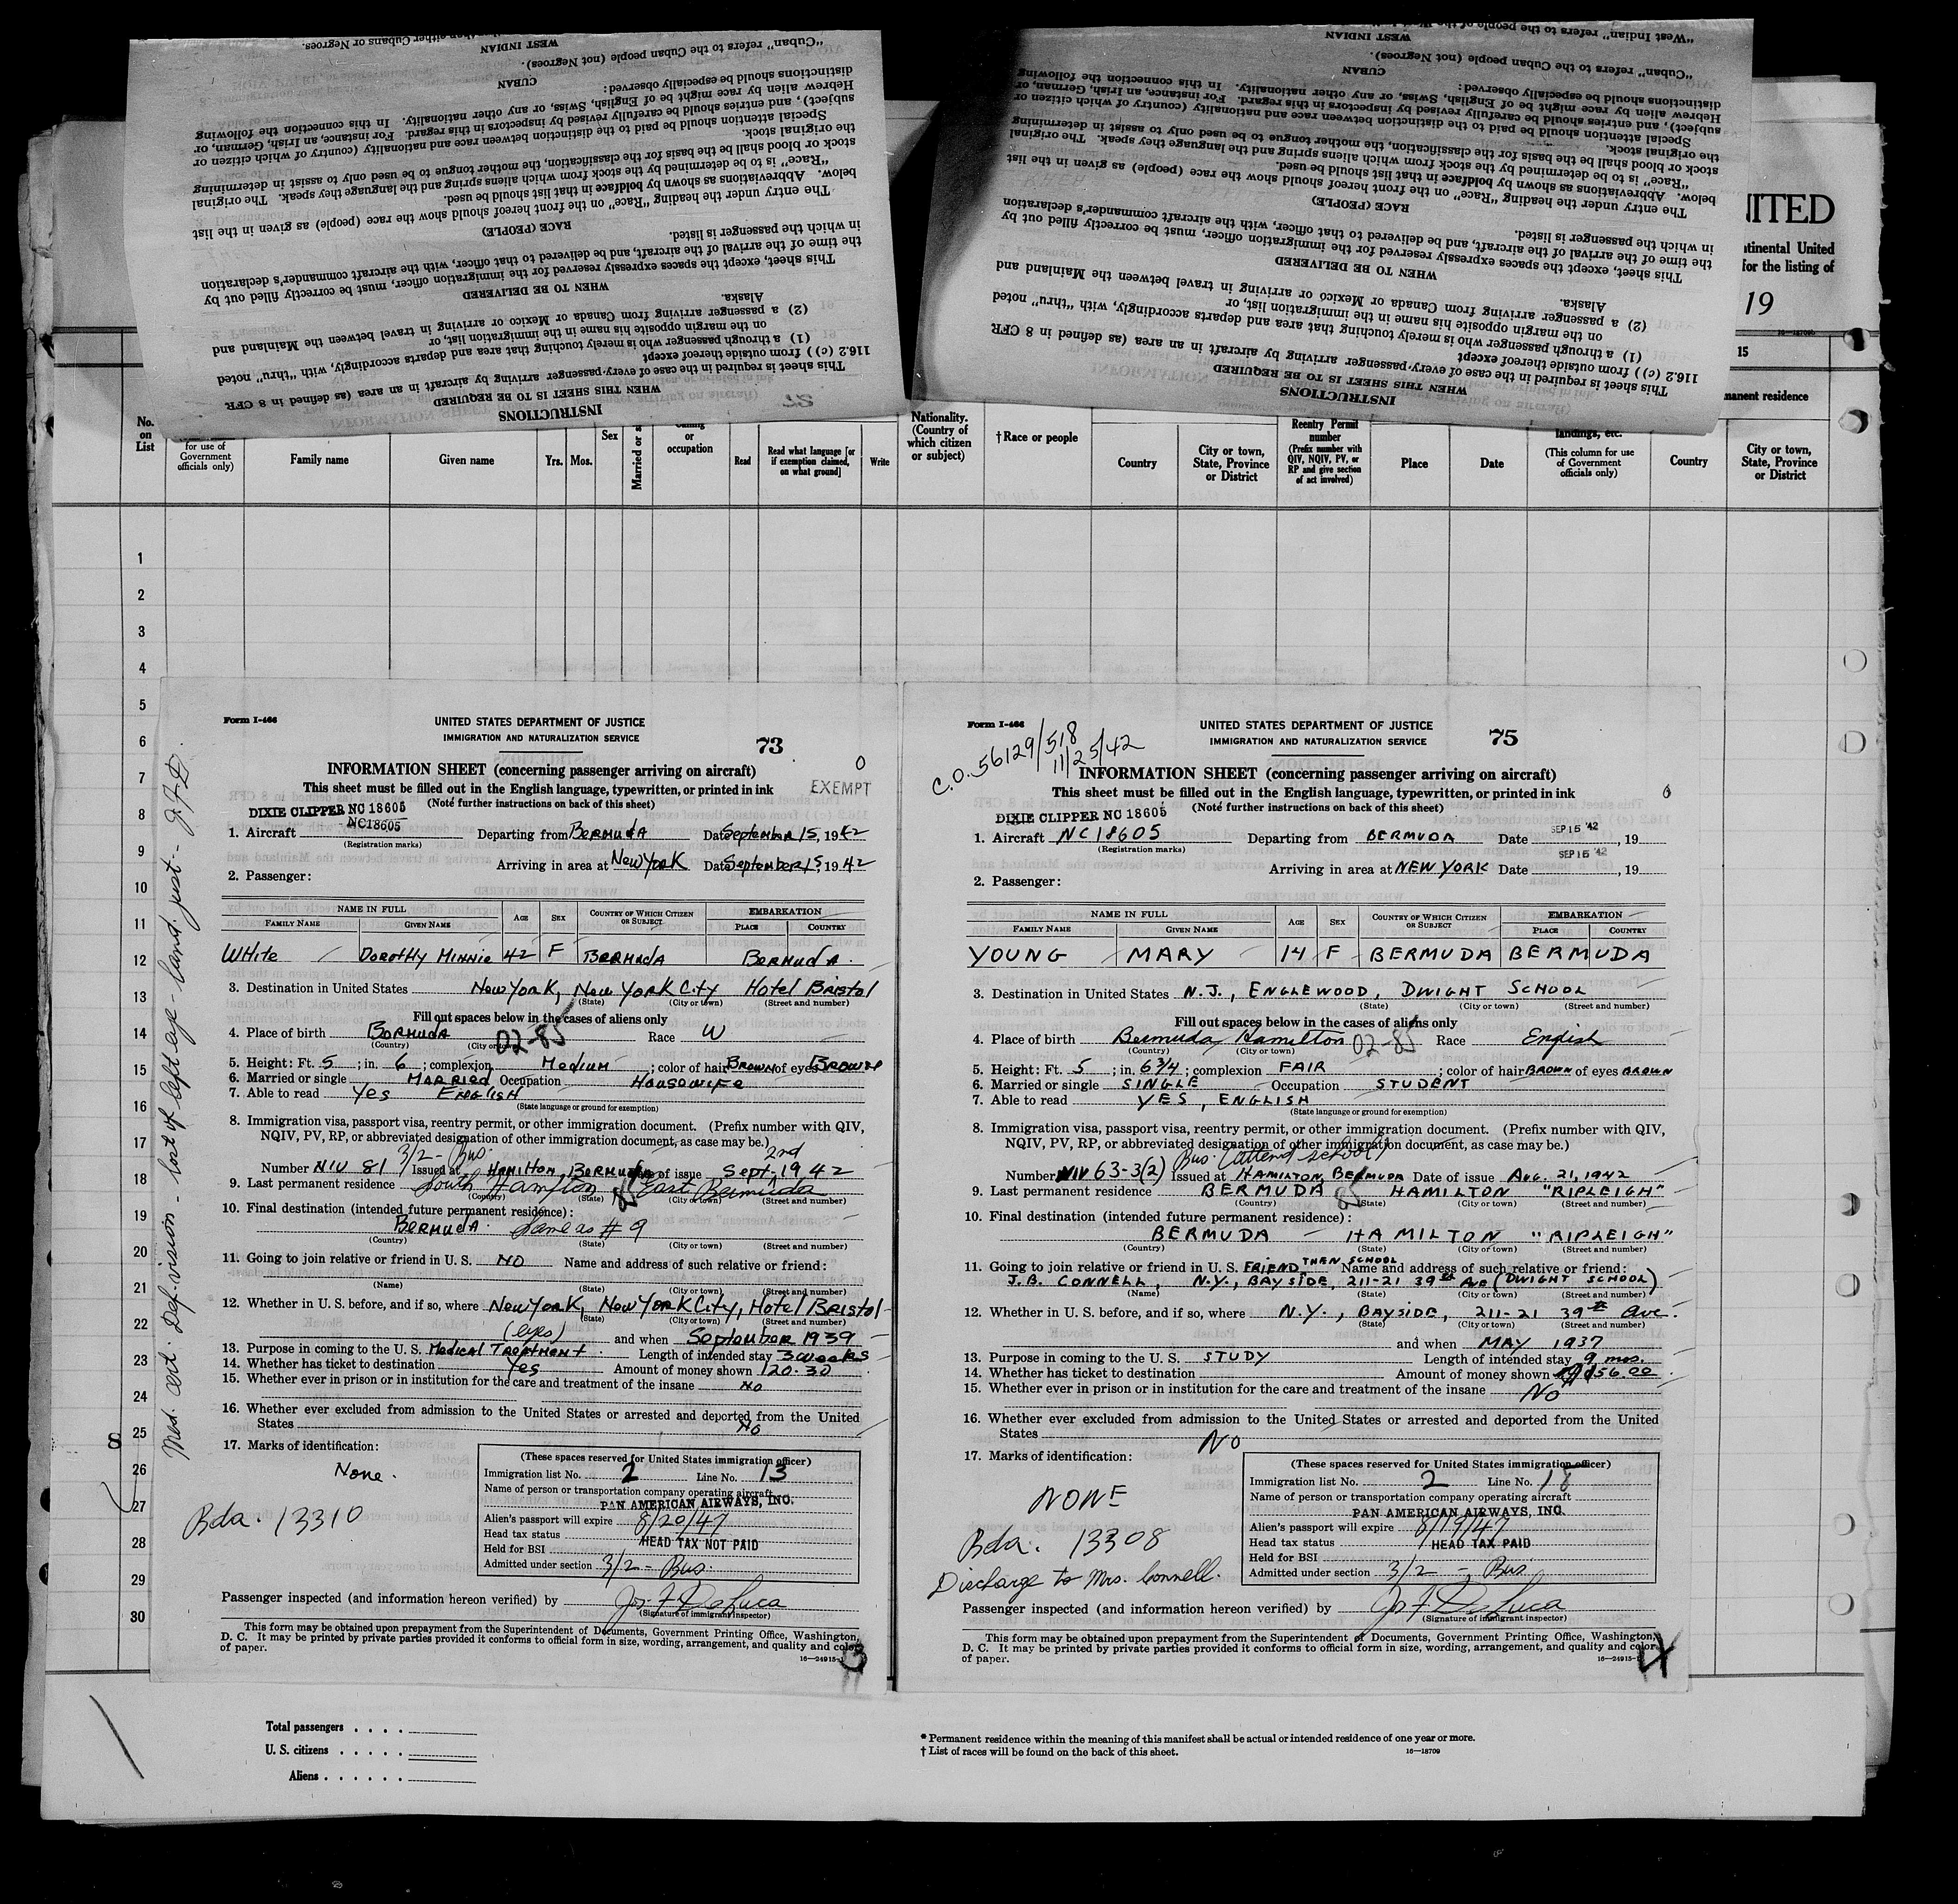 "West Indian" refers to the people of the West
WEST INDIAN
"Cuban" refers to the Cuban people (not Negroes).
CUBAN
distinctions should be especially observed:
Hebrew alien by race might be of English, Swiss, or any other nationality. In this connection the following
subject), and entries should be carefully revised by inspectors in this regard. For instance, an Irish, German, or
Special attention should be paid to the distinction between race and nationality (country of which citizen or
the original stock.
stock or blood shall be the basis for the classification, the mother tongue to be used only to assist in determining
"Race" is to be determined by the stock from which aliens spring and the language they speak. The original
below. Abbreviations as shown by boldface in that list should be used.
The entry under the heading "Race" on the front hereof should show the race (people) as given in the list
RACE (PEOPLE)
in which the passenger is listed.
the time of the arrival of the aircraft, and be delivered to that officer, with the aircraft commander's declaration
This sheet, except the spaces expressly reserved for the immigration officer, must be correctly filled out by
WHEN TO BE DELIVERED
Alaska.
(2) a passenger arriving from Canada or Mexico or arriving in travel between the Mainland and
on the margin opposite his name in the immigration list, or
(1) a through passenger who is merely touching that area and departs accordingly, with "thru" noted
116.2 (c) ) from outside thereof except
This sheet is required in the case of every passenger arriving by aircraft in an area (as defined in 8 CFR
WHEN THIS SHEET IS TO BE REQUIRED
INSTRUCTIONS
ITED
tinental United
for the listing of
19
16—18709
15
manent residence
No. on List
for use of Government officials only)
Family name
Given name
Yrs. Mos.
Sex
Married or s
or occupation
Read
Read what language [or if exemption claimed, on what ground]
Write
Nationality. (Country of which citizen or subject)
†Race or people
Country
City or town, State, Province or District
Reentry Permit number (Prefix number with QIV, NQIV, PV, or RP and give section of act involved)
Place
Date
landings, etc. (This column for use of Government officials only)
Country
City or town, State, Province or District
1
2
3
4
5
6
7
8
9
10
11
12
13
14
15
16
17
18
19
20
21
22
23
24
25
26
27
28
29
30
8
Med. cert: Def. vision - lost of left eye - land. just - J.F.D.
Form I-466
UNITED STATES DEPARTMENT OF JUSTICE
IMMIGRATION AND NATURALIZATION SERVICE
73
0
INFORMATION SHEET (concerning passenger arriving on aircraft)
EXEMPT
This sheet must be filled out in the English language, typewritten, or printed in ink
(Note further instructions on back of this sheet)
DIXIE CLIPPER NC 18605
1. Aircraft NC18605 Departing from Bermuda Date September 15, 1942
(Registration marks)
Arriving in area at New York Date September 15, 1942
2. Passenger:
NAME IN FULL AGE SEX COUNTRY OF WHICH CITIZEN OR SUBJECT EMBARKATION
FAMILY NAME GIVEN NAME PLACE COUNTRY
White Dorothy Minnie 42 F Bermuda Bermuda.
3. Destination in United States New York, New York City Hotel Bristol
(State) (City or town) (Street and number)
Fill out spaces below in the cases of aliens only
4. Place of birth Bermuda 02-85 Race W
(Country) (City or town)
5. Height: Ft. 5; in. 6; complexion Medium; color of hair Brown of eyes Brown
6. Married or single Married Occupation Housewife
7. Able to read Yes English
(State language or ground for exemption)
8. Immigration visa, passport visa, reentry permit, or other immigration document. (Prefix number with QIV,
NQIV, PV, RP, or abbreviated designation of other immigration document, as case may be.)
3/2 - Bus. 2nd
Number NIV 81 Issued at Hamilton, Bermuda Date of issue Sept. 1942
9. Last permanent residence South Hampton 85 East Bermuda
(Country) (State) (City or town) (Street and number)
10. Final destination (intended future permanent residence):
Bermuda. # 9
(Country) (State) (City or town) (Street and number)
11. Going to join relative or friend in U. S. No Name and address of such relative or friend:
(Name) (State) (City or town) (Street and number)
12. Whether in U. S. before, and if so, where New York, New York City, Hotel Bristol
(State) (City or town) (Street and number)
(eyes) and when September 1939
13. Purpose in coming to the U. S. Medical Treatment. Length of intended stay 3 weeks
14. Whether has ticket to destination Yes Amount of money shown 120.30
15. Whether ever in prison or in institution for the care and treatment of the insane No
16. Whether ever excluded from admission to the United States or arrested and deported from the United
States No
17. Marks of identification:
None.
Bda. 13310
(These spaces reserved for United States immigration officer)
Immigration list No. 2 Line No. 13
Name of person or transportation company operating aircraft
PAN AMERICAN AIRWAYS, INC.
Alien's passport will expire 8/20/47
Head tax status HEAD TAX NOT PAID
Held for BSI
Admitted under section 3/2 - Bus.
Passenger inspected (and information hereon verified) by Jos. F. DeLuca
(Signature of immigrant inspector)
This form may be obtained upon prepayment from the Superintendent of Documents, Government Printing Office, Washington,
D. C. It may be printed by private parties provided it conforms to official form in size, wording, arrangement, and quality and color
of paper.
16—24915-1
3
Form I-466
C.O. 56129/518
11/25/42
UNITED STATES DEPARTMENT OF JUSTICE
IMMIGRATION AND NATURALIZATION SERVICE
75
INFORMATION SHEET (concerning passenger arriving on aircraft)
This sheet must be filled out in the English language, typewritten, or printed in ink
0
(Note further instructions on back of this sheet)
DIXIE CLIPPER NC 18605
1. Aircraft NC18605 Departing from BERMUDA Date SEP 15 '42, 19
(Registration marks)
Arriving in area at NEW YORK Date SEP 15 '42, 19
2. Passenger:
NAME IN FULL AGE SEX COUNTRY OF WHICH CITIZEN OR SUBJECT EMBARKATION
FAMILY NAME GIVEN NAME PLACE COUNTRY
YOUNG MARY 14 F BERMUDA BERMUDA
3. Destination in United States N.J., ENGLEWOOD, DWIGHT SCHOOL
(State) (City or town) (Street and number)
Fill out spaces below in the cases of aliens only
4. Place of birth Bermuda, Hamilton 02-85 Race English
(Country) (City or town)
5. Height: Ft. 5; in. 6 3/4; complexion FAIR; color of hair BROWN of eyes BROWN
6. Married or single SINGLE Occupation STUDENT
7. Able to read YES, ENGLISH
(State language or ground for exemption)
8. Immigration visa, passport visa, reentry permit, or other immigration document. (Prefix number with QIV,
NQIV, PV, RP, or abbreviated designation of other immigration document, as case may be.)
Bus. (attend school)
Number NIV 63-3(2) Issued at HAMILTON, BERMUDA Date of issue AUG. 21, 1942
9. Last permanent residence BERMUDA 85 HAMILTON "RIPLEIGH"
(State) (City or town) (Street and number)
10. Final destination (intended future permanent residence):
BERMUDA - HAMILTON "RIPLEIGH"
(Country) (State) (City or town) (Street and number)
11. Going to join relative or friend in U. S. FRIEND THEN SCHOOL Name and address of such relative or friend:
J.B. CONNELL, N.Y., BAYSIDE, 211-21 39th AVE (DWIGHT SCHOOL)
(Name) (State) (City or town) (Street and number)
12. Whether in U. S. before, and if so, where N.Y., BAYSIDE, 211-21 39th Ave.
(State) (City or town) (Street and number)
and when MAY 1937
13. Purpose in coming to the U. S. STUDY Length of intended stay 9 mos.
14. Whether has ticket to destination Amount of money shown 56.00
15. Whether ever in prison or in institution for the care and treatment of the insane No
16. Whether ever excluded from admission to the United States or arrested and deported from the United
States No
17. Marks of identification:
NONE
Bda. 13308
Discharge to Mrs. Connell.
(These spaces reserved for United States immigration officer)
Immigration list No. 2 Line No. 18
Name of person or transportation company operating aircraft
PAN AMERICAN AIRWAYS, INC.
Alien's passport will expire 8/19/47
Head tax status HEAD TAX PAID
Held for BSI
Admitted under section 3/2 - Bus.
Passenger inspected (and information hereon verified) by Jos. F. DeLuca
(Signature of immigrant inspector)
This form may be obtained upon prepayment from the Superintendent of Documents, Government Printing Office, Washington,
D. C. It may be printed by private parties provided it conforms to official form in size, wording, arrangement, and quality and color
of paper.
16—24915-1
4
Total passengers . . . .
U. S. citizens . . . . .
Aliens . . . . . .
* Permanent residence within the meaning of this manifest shall be actual or intended residence of one year or more.
† List of races will be found on the back of this sheet.
16—18709